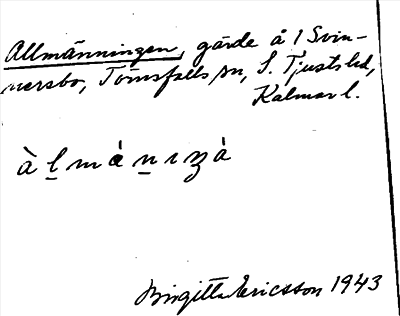 Allmänningen, gärde å 1 Svin-
nersbo, Törnsfalls sn, S. Tjusts hd,
Kalmar l.
à l̲ m á n̲ ı ᶎ à
Birgitta Ericsson 1943